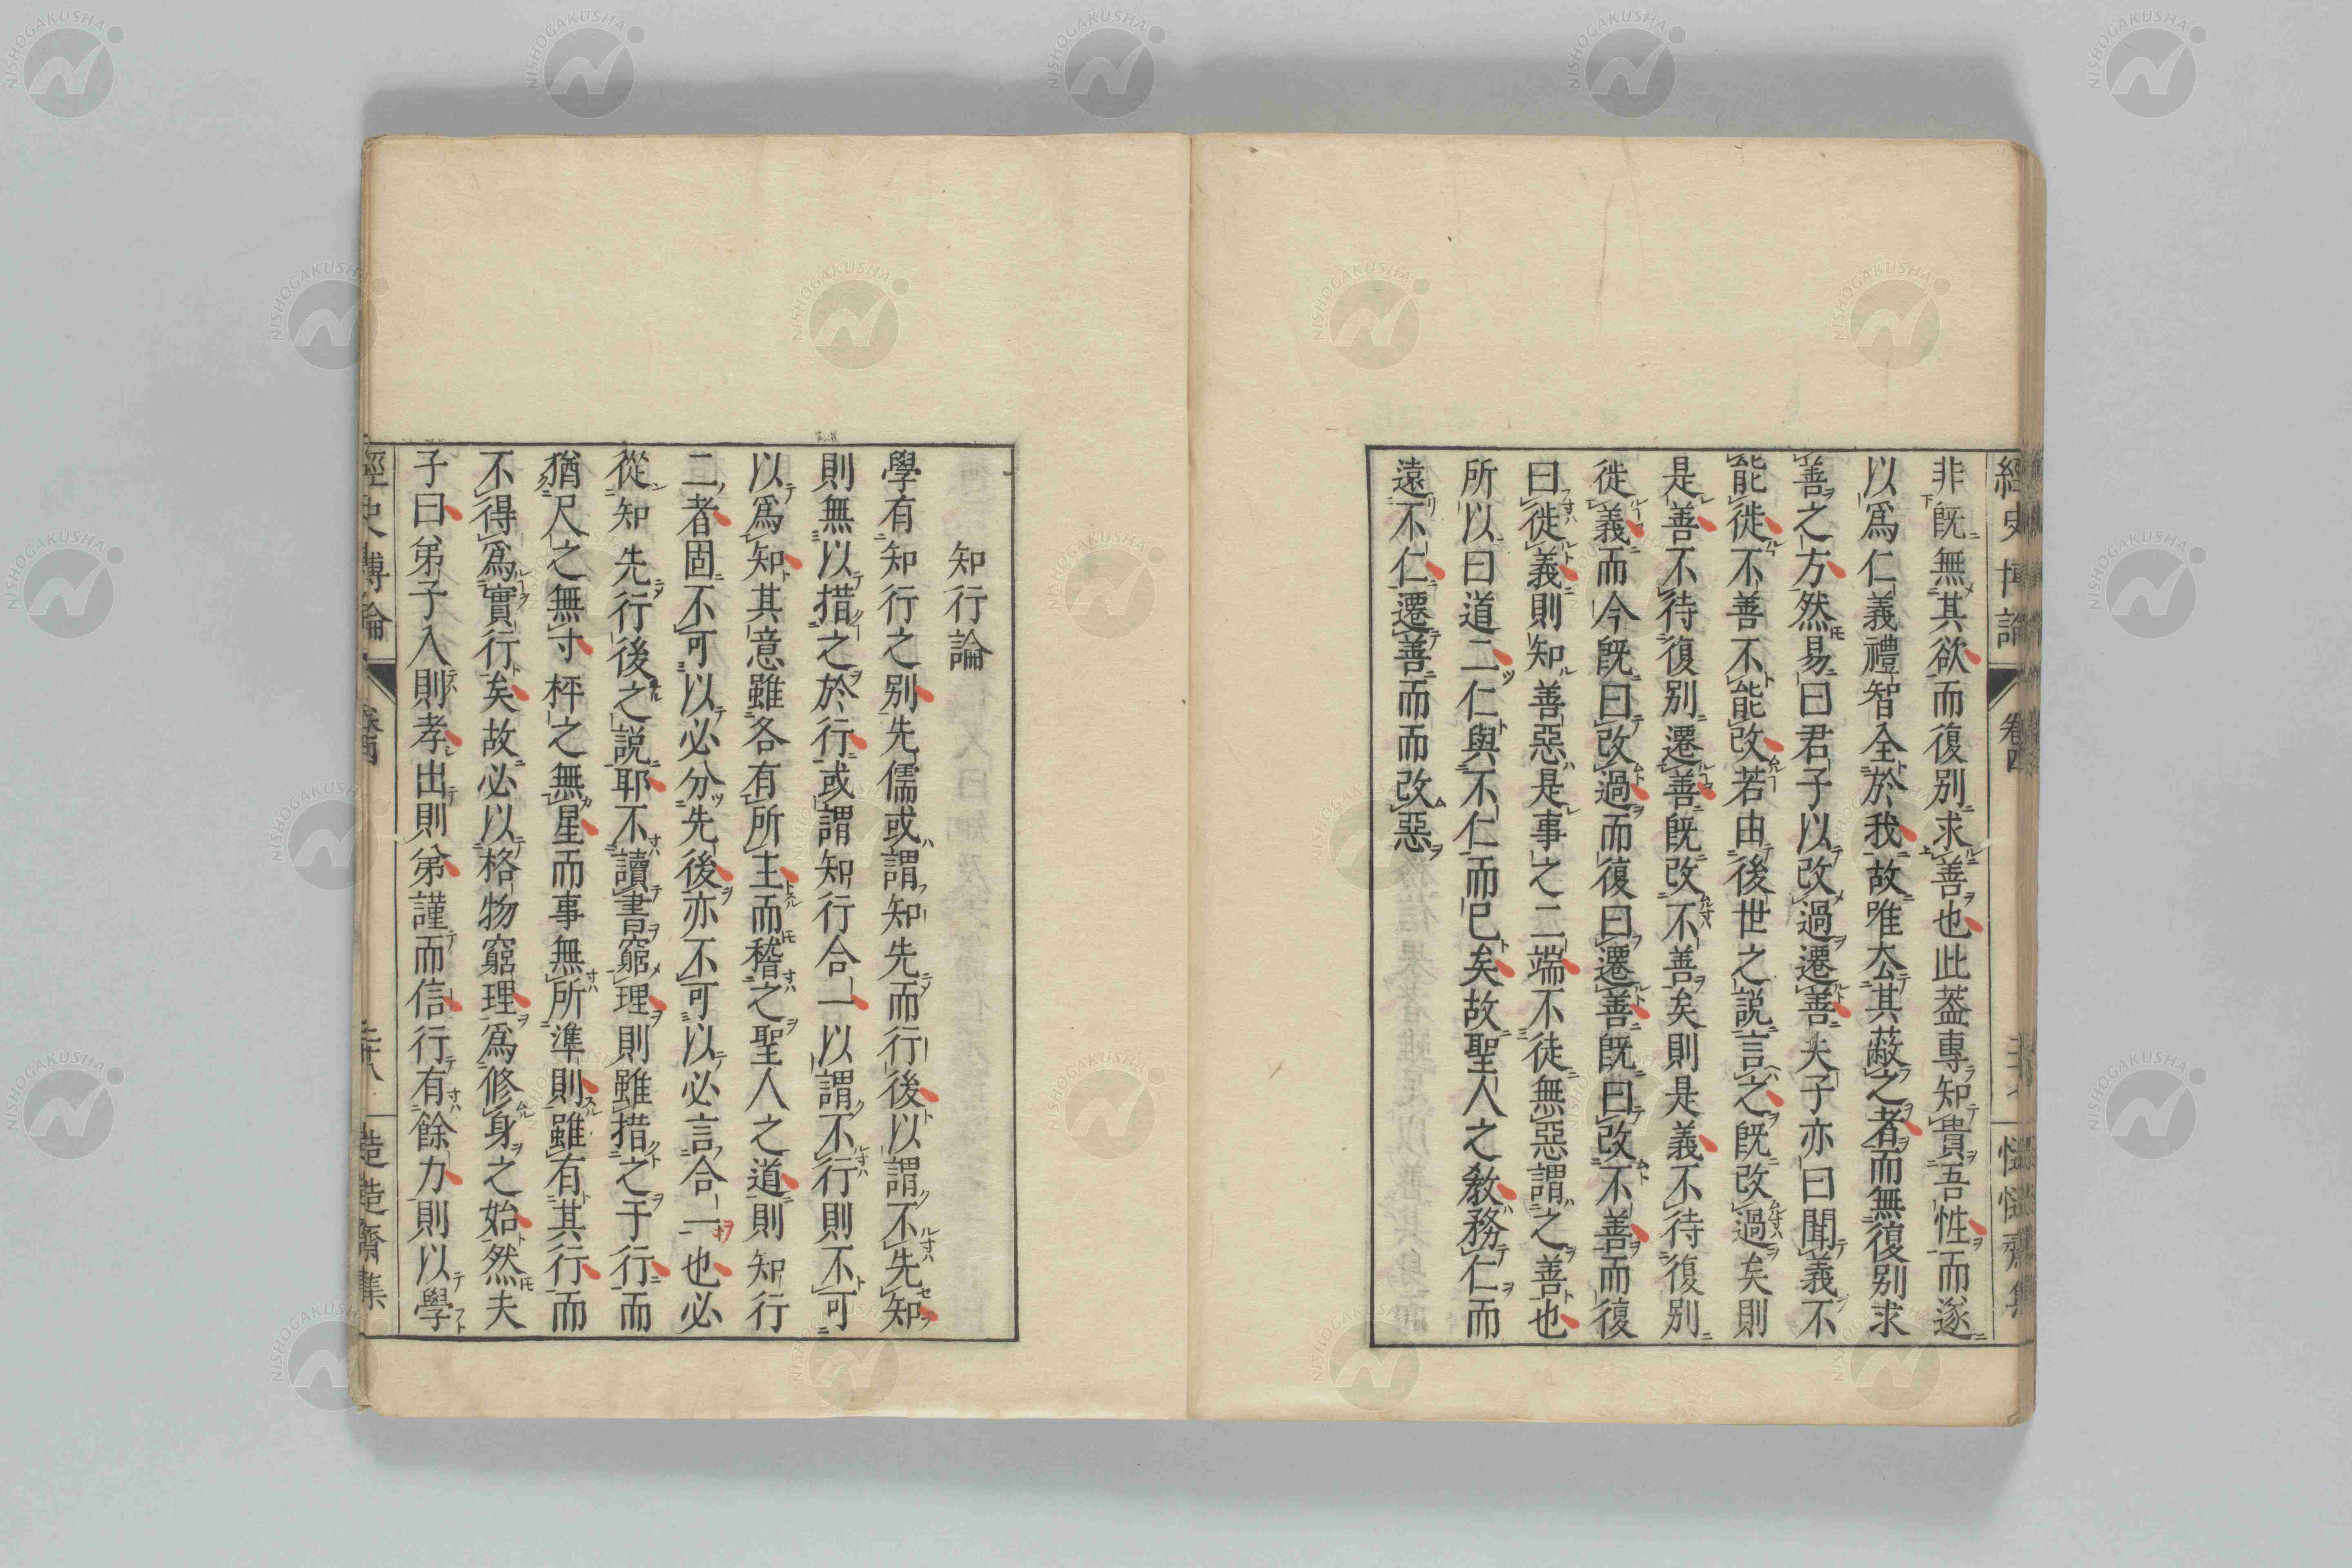 經史博論
卷四
非既無其欲而復別求善也此葢專知貴吾性而遂
以爲仁義禮智全於我故唯去其蔽之者而無復別求
善之方然易曰君子以改過遷善夫子亦曰聞義不
能徙不善不能改若由後世之說言之既改過矣則
是善不待復別遷善既改不善矣則是義不待復別
徙義而今既曰改過而復曰遷善既曰改不善而復
曰徙義則知善惡是事之二端不徒無惡謂之善也
所以曰道二仁與不仁而已矣故聖人之敎務仁而
遠不仁遷善而而改惡
知行論
學有知行之別先儒或謂知先而行後以謂不先知
則無以措之於行或謂知行合一以謂不行則不可
以爲知其意雖各有所主而稽之聖人之道則知行
二者固不可以必分先後亦不可以必言合一也必
從知先行後之說耶不讀書窮理則雖措之于行而
猶尺之無寸枰之無星而事無所準則雖有其行而
不得爲實行矣故必以格物窮理爲修身之始然夫
子曰弟子入則孝出則弟謹而信行有餘力則以學
經史博論
卷四
三十八
慥慥齋集
NISHOGAKUSHA